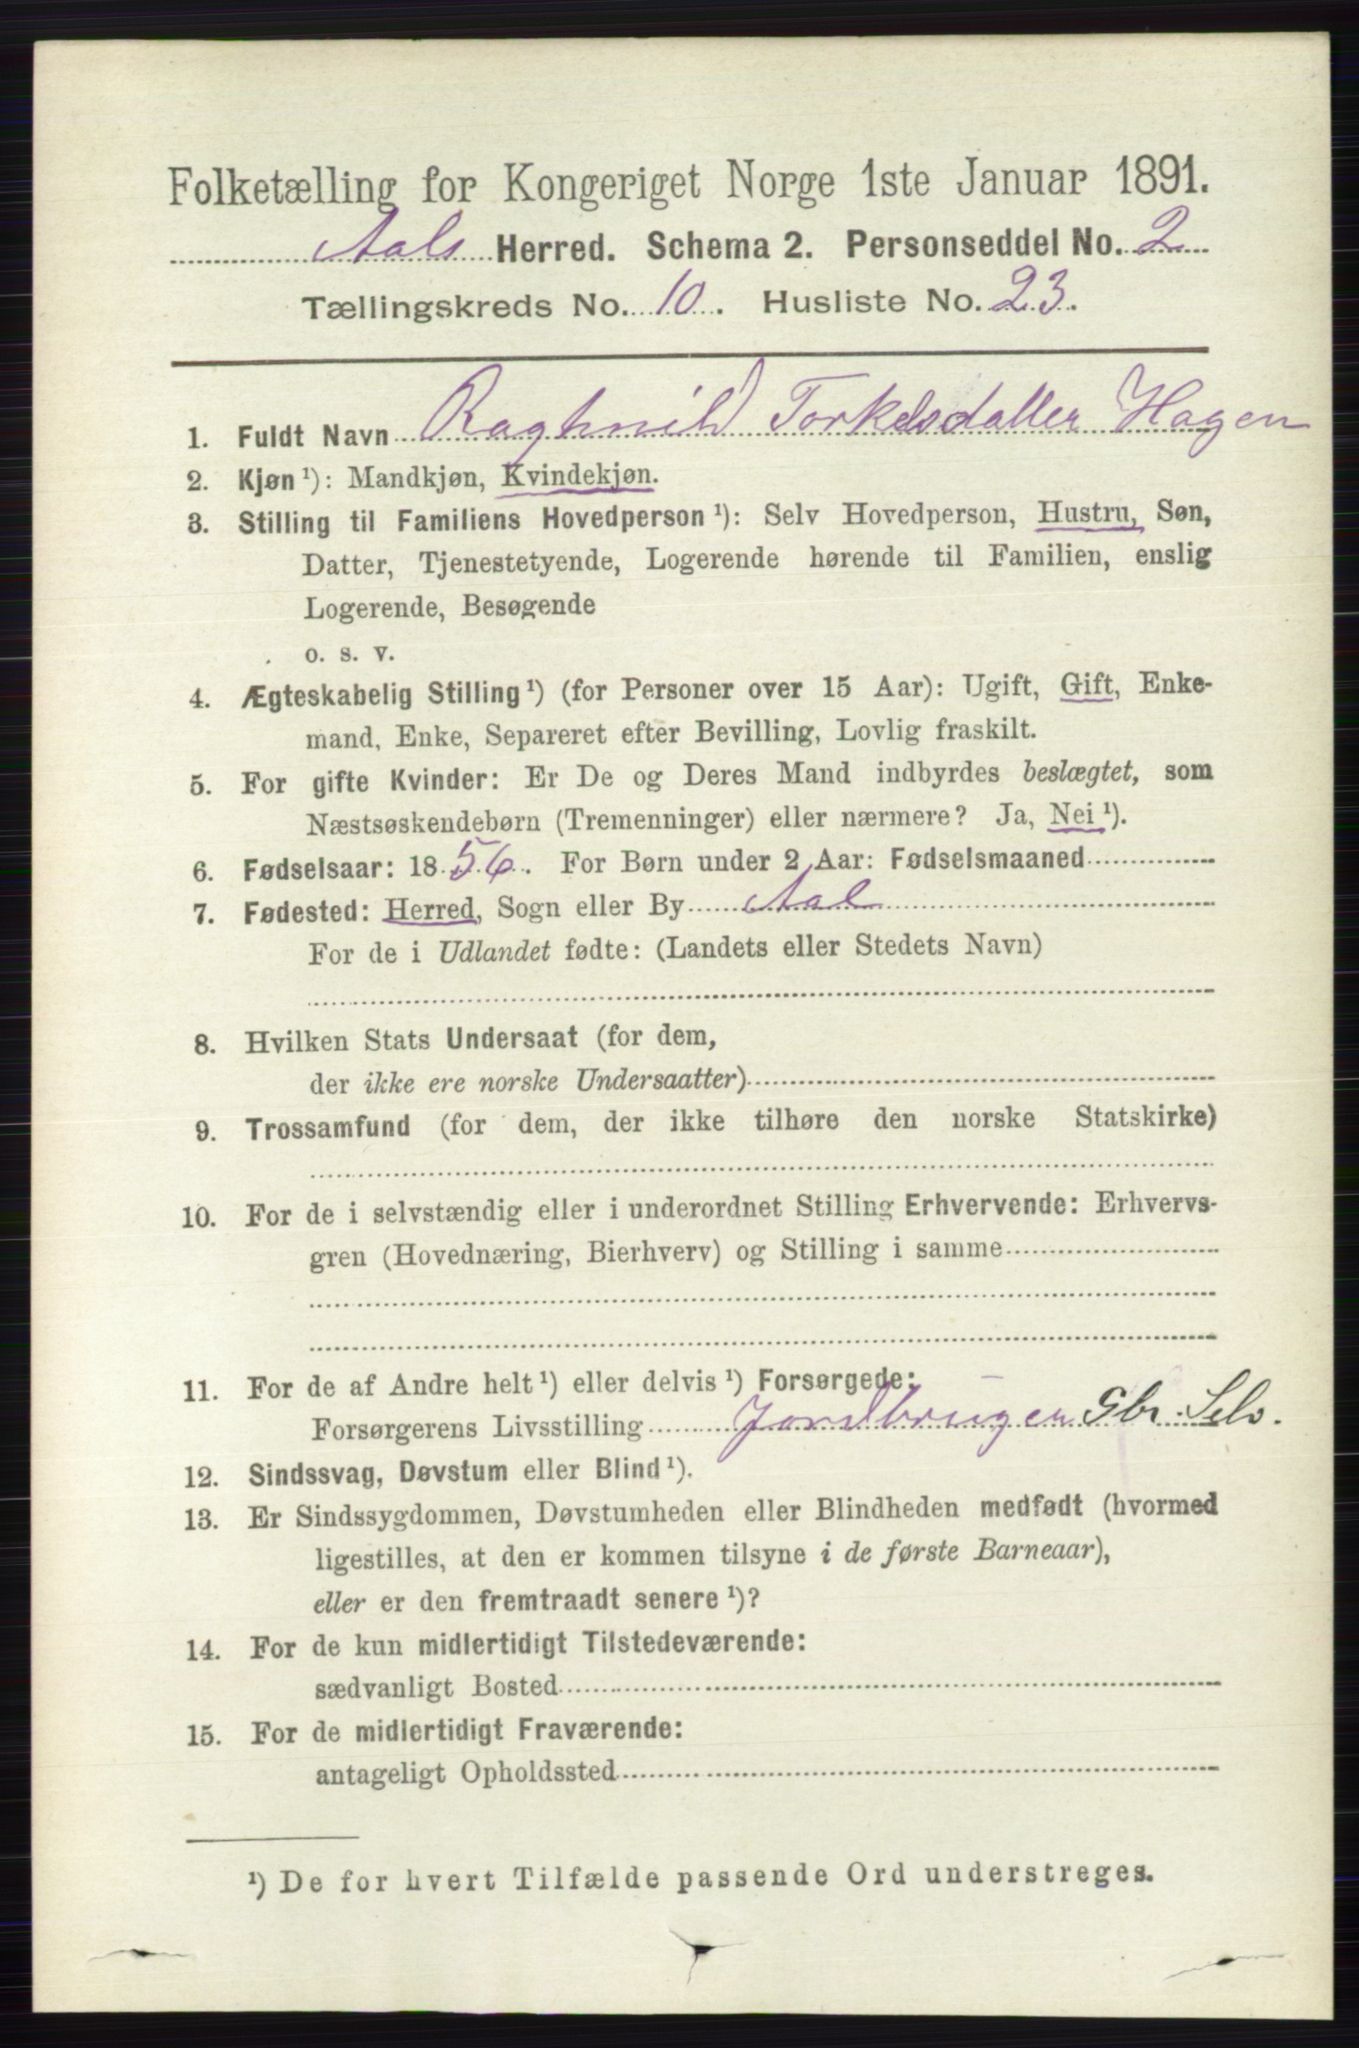 Folketælling for Kongeriget Norge 1ste Januar 1891.
Aals Herred. Schema 2. Personseddel No. 2
Tællingskreds No. 10. Husliste No. 23.
1. Fuldt Navn Raghnild Torkelsdatter Hagen
2. Kjøn ¹): Mandkjøn, Kvindekjøn.
3. Stilling til Familiens Hovedperson ¹): Selv Hovedperson, Hustru, Søn,
Datter, Tjenestetyende, Logerende hørende til Familien, enslig
Logerende, Besøgende
o. s. v.
4. Ægteskabelig Stilling ¹) (for Personer over 15 Aar): Ugift, Gift, Enke-
mand, Enke, Separeret efter Bevilling, Lovlig fraskilt.
5. For gifte Kvinder: Er De og Deres Mand indbyrdes beslægtet, som
Næstsøskendebørn (Tremenninger) eller nærmere? Ja, Nei ¹).
6. Fødselsaar: 1856. For Børn under 2 Aar: Fødselsmaaned
7. Fødested: Herred, Sogn eller By Aal
For de i Udlandet fødte: (Landets eller Stedets Navn)
8. Hvilken Stats Undersaat (for dem,
der ikke ere norske Undersaatter)
9. Trossamfund (for dem, der ikke tilhøre den norske Statskirke)
10. For de i selvstændig eller i underordnet Stilling Erhvervende: Erhvervs-
gren (Hovednæring, Bierhverv) og Stilling i samme
11. For de af Andre helt ¹) eller delvis ¹) Forsørgede:
Forsørgerens Livsstilling Jordbruger Gbr. Selv.
12. Sindssvag, Døvstum eller Blind ¹).
13. Er Sindssygdommen, Døvstumheden eller Blindheden medfødt (hvormed
ligestilles, at den er kommen tilsyne i de første Barneaar),
eller er den fremtraadt senere ¹)?
14. For de kun midlertidigt Tilstedeværende:
sædvanligt Bosted
15. For de midlertidigt Fraværende:
antageligt Opholdssted
¹) De for hvert Tilfælde passende Ord understreges.